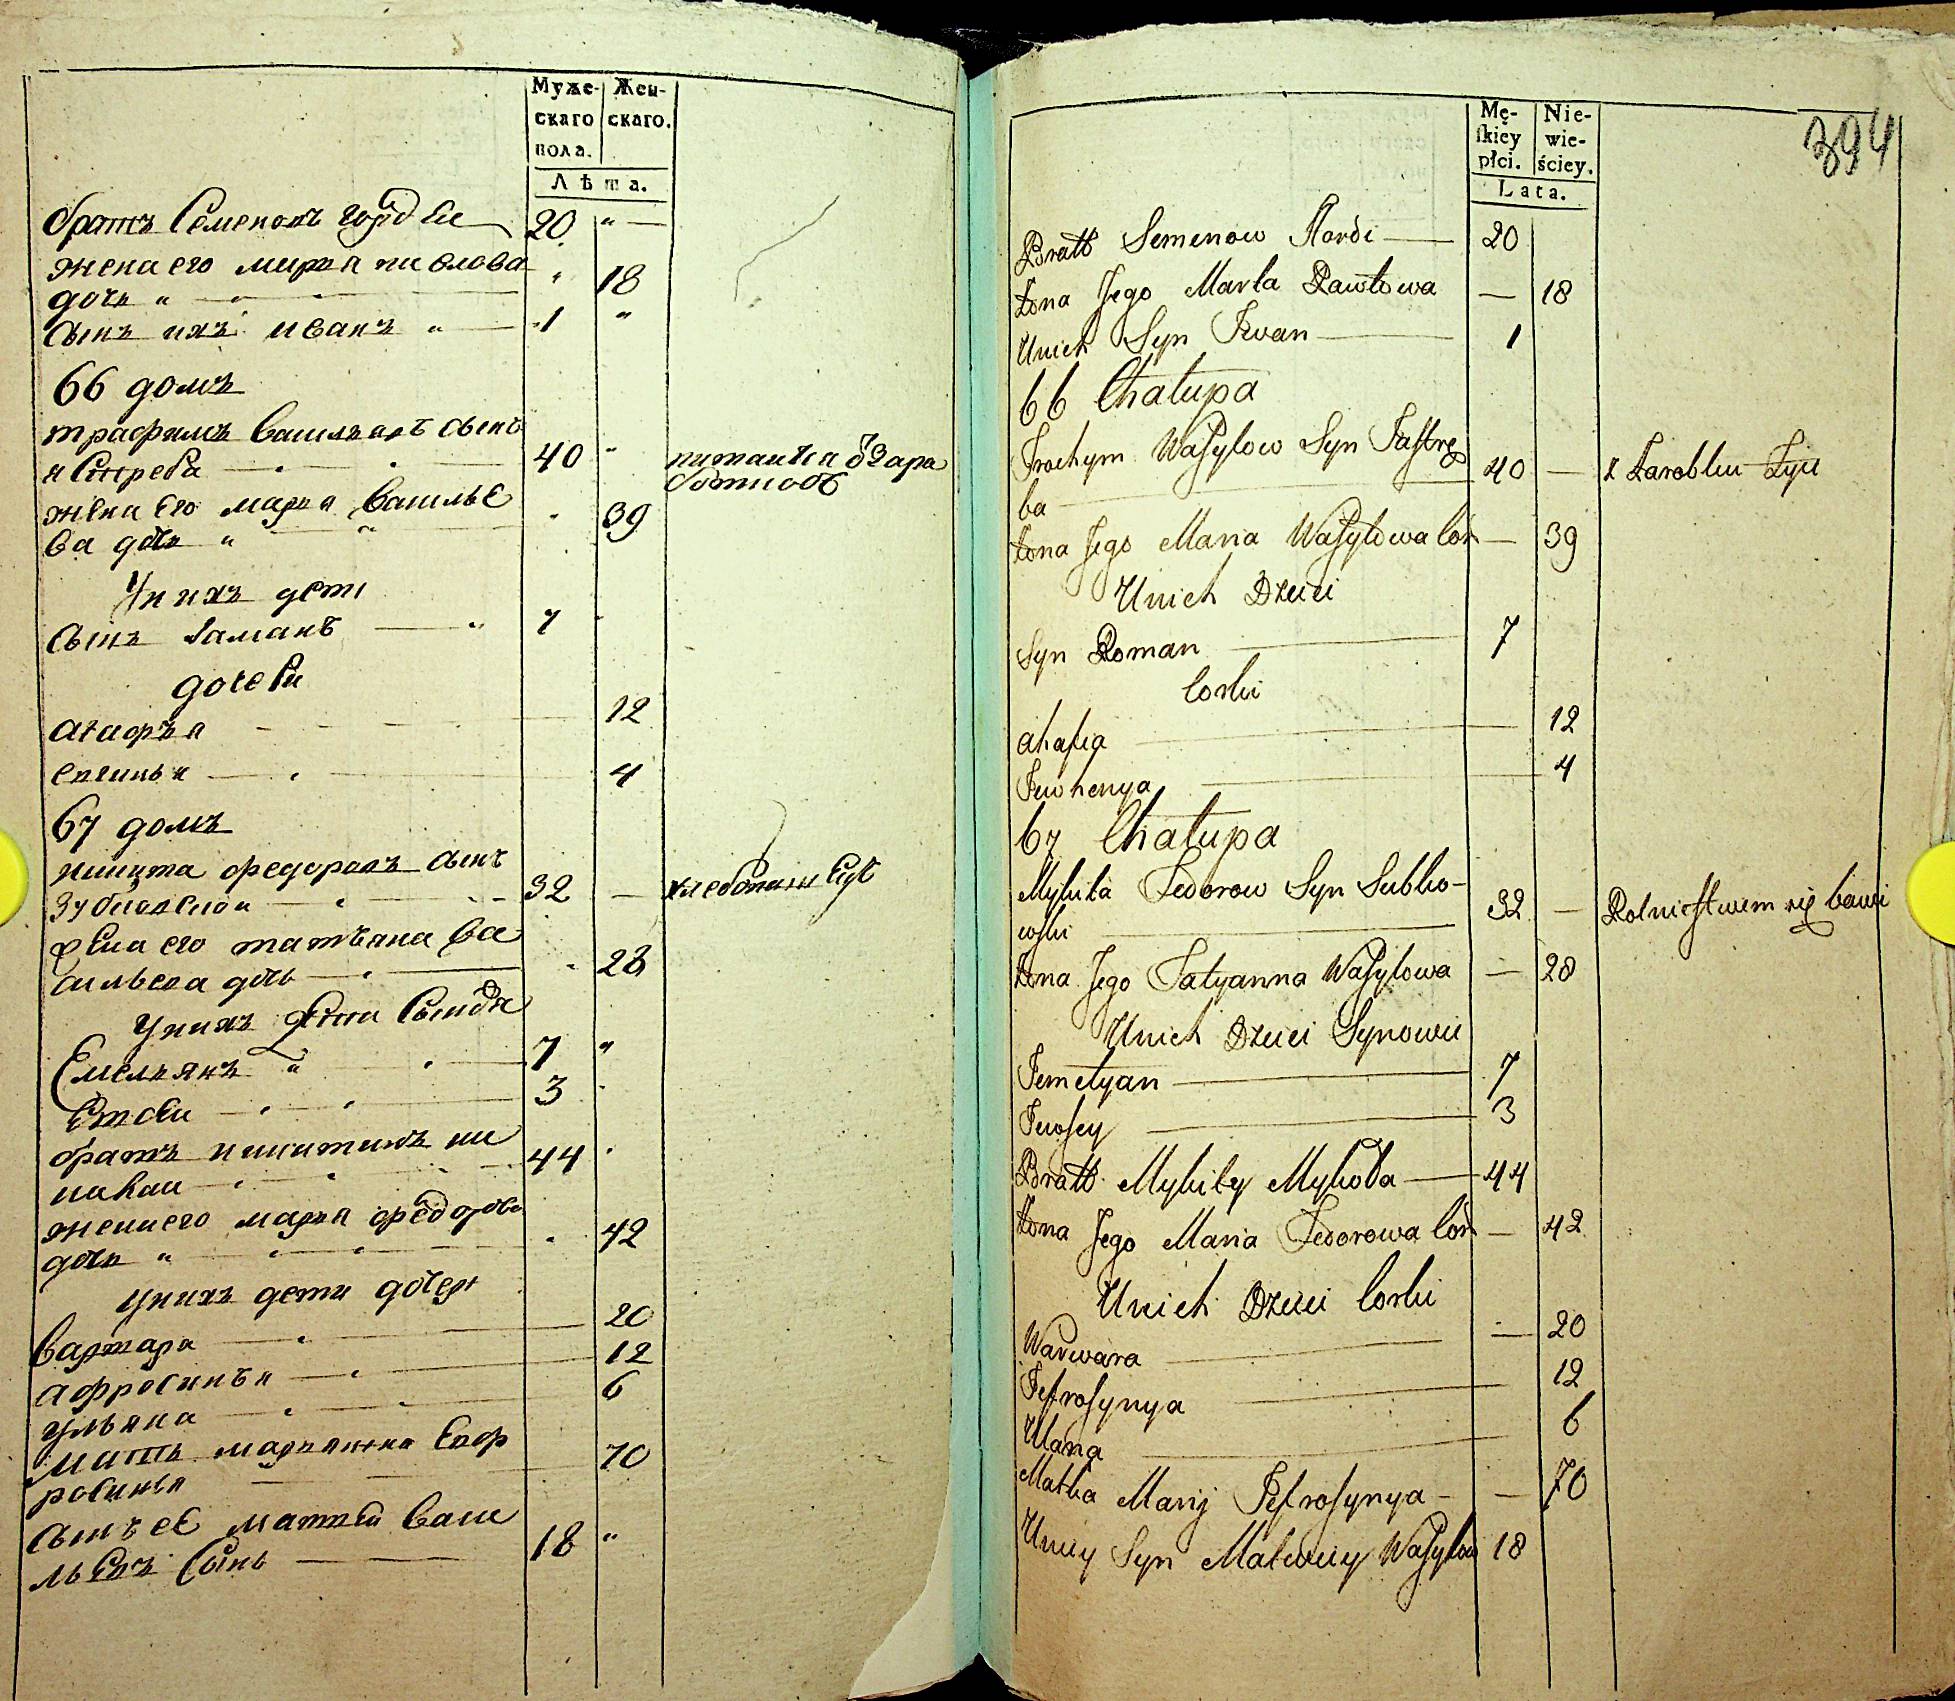 Муже-
скаго
пола.
Жен-
скаго.
Лѣта.
братъ Семеновъ гордей 20 "
жена его марья павлова
дочь " 18
сынъ ихъ иванъ " 1 "
66 домъ
трафимъ васильевъ сынъ
ястреба 40 " питаится
жена его марья василье
ва дочь " 39
У нихъ дети
сынъ раманъ 7
дочери
агафья 12
евгинья 4
67 домъ
никита федоровъ сынъ
32 — хлебопашецъ
жена его татьяна ва
сильева дочь 28
у нихъ дети сыновья
Емельянъ " 7 "
Евсей 3
братъ никитинъ ни
44
жена его марья федорова
дочь " 42
у нихъ дети дочери
варвара 20
афросинья 12
ульяна 6
мать марьянина евф
росинья 70
сынъ ее матвей васи
льевъ сынъ 18 "
Mę-
skiey
płci.
Nie-
wie-
ściey.
Lata.
394
Bratt Semenow Hordi 20
Żona Jego Maria Pawłowa — 18
Unich Syn Iwan 1
66 Chałupa
Trochym Wasylow Syn Jastrę
ba 40 — z Zarobku Żyie
Żona Jego Maria Wasylowa Cór — 39
Unich Dzieci
Syn Roman 7
Corki
ahafia 12
Jewhenya 4
67 Chałupa
Mykita Fedorow Syn Subko-
wski 32 — Rolnictwem się bawi
Żona Jego Tatyanna Wasylowa — 28
Unich Dzieci Synowie
Jemelyan 7
Jewsey 3
Bratt Mykity Mykoła 44
Żona Jego Maria Fedorowa Cór — 42
Unich Dzieci Corki
Warwara — 20
Jefrosynya 12
Ulana 6
Matka Maryi Jefrosynya — 70
Uniey Syn Matwiey Wasylow 18